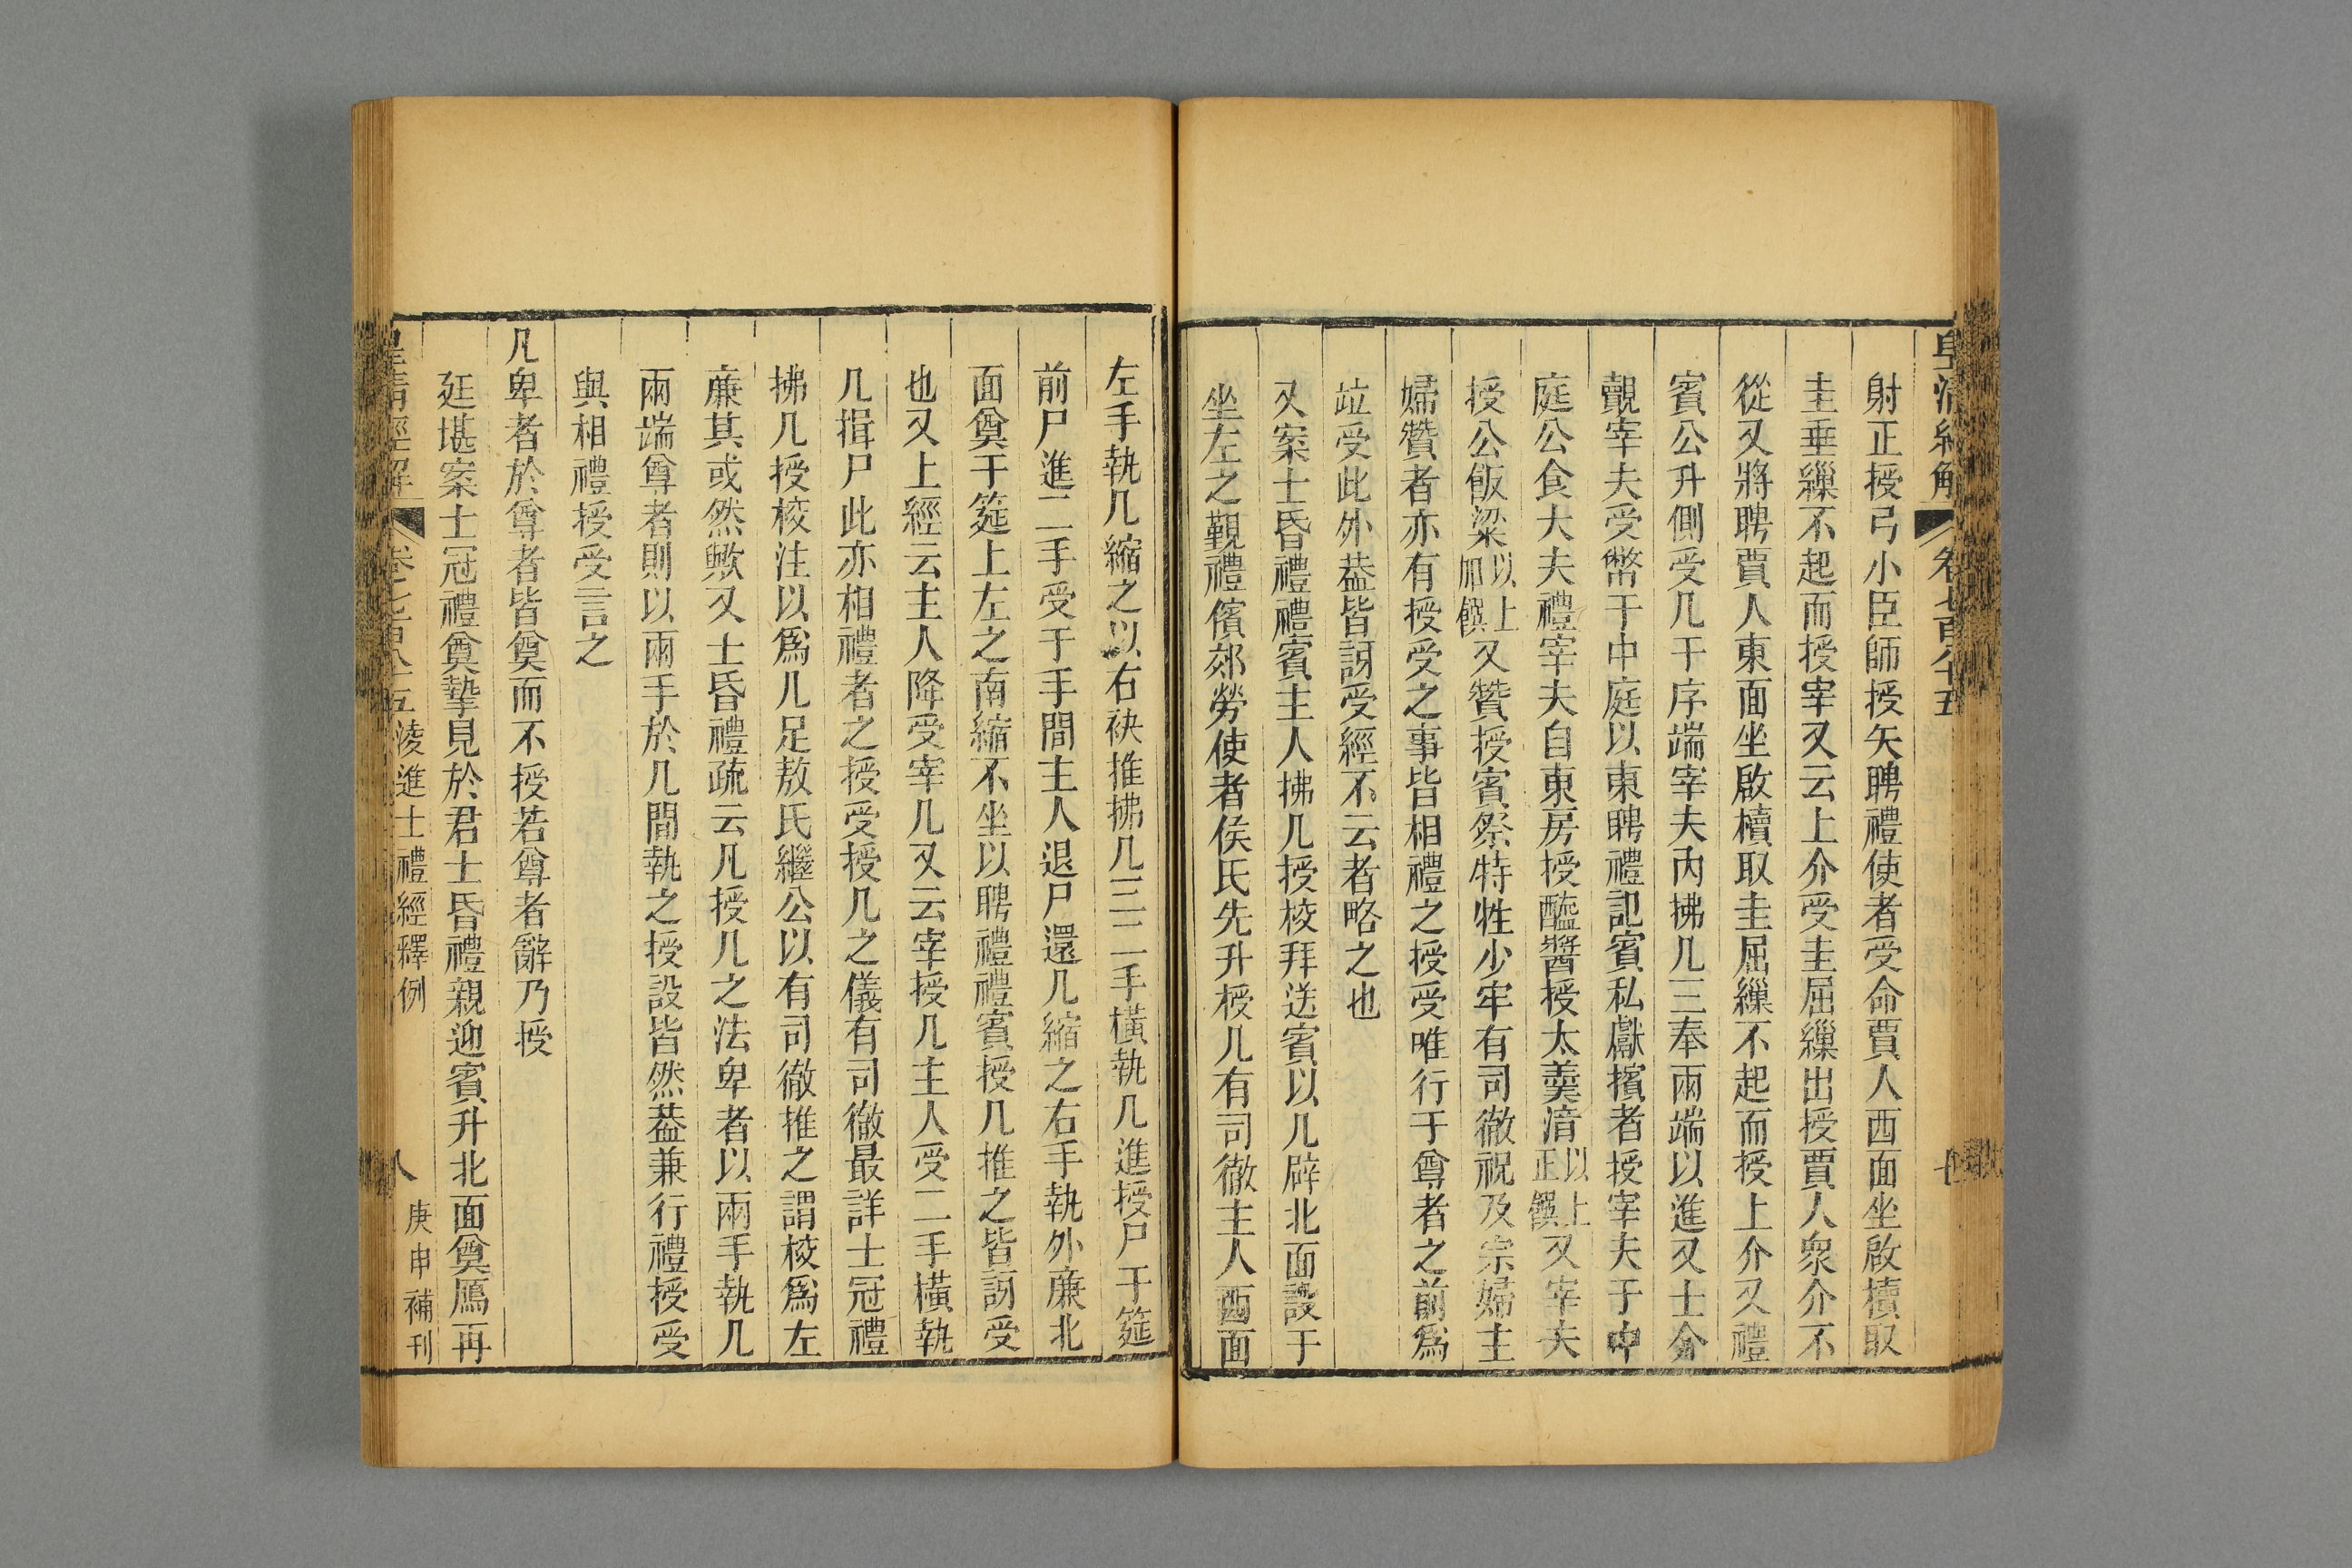 皇清經解 卷七百八十五
射正授弓小臣師授矢聘禮使者受命賈人西面坐啟櫝取
圭垂繅不起而授宰又云上介受圭屈繅出授賈人衆介不
從又將聘賈人東面坐啟櫝取圭屈繅不起而授上介又禮
賓公升側受几于序端宰夫內拂几三奉兩端以進又士介
覿宰夫受幣于中庭以東聘禮記賓私獻擯者授宰夫于中
庭公食大夫禮宰夫自東房授醯醬授太羹湇以上正饌又宰夫
授公飯粱以上加饌又贊授賓祭特牲少牢有司徹祝及宗婦主
婦贊者亦有授受之事皆相禮之授受唯行于尊者之前爲
竝受此外葢皆訝受經不云者略之也
又案士昏禮禮賓主人拂几授校拜送賓以几辟北面設于
坐左之覲禮儐郊勞使者侯氏先升授几有司徹主人西面
左手執几縮之以右袂推拂几三二手橫執几進授尸于筵
前尸進二手受于手間主人退尸還几縮之右手執外廉北
面奠于筵上左之南縮不坐以聘禮禮賓授几推之皆訝受
也又上經云主人降受宰几又云宰授几主人受二手橫執
几揖尸此亦相禮者之授受授几之儀有司徹最詳士冠禮
拂几授校注以爲几足敖氏繼公以有司徹推之謂校爲左
廉其或然歟又士昏禮疏云凡授几之法卑者以兩手執几
兩端尊者則以兩手於几間執之授設皆然葢兼行禮授受
與相禮授受言之
凡卑者於尊者皆奠而不授若尊者辭乃授
廷堪案士冠禮奠摯見於君士昏禮親迎賓升北面奠鴈再
皇清經解 卷七百八十五 淩進士禮經釋例 八 庚申補刊